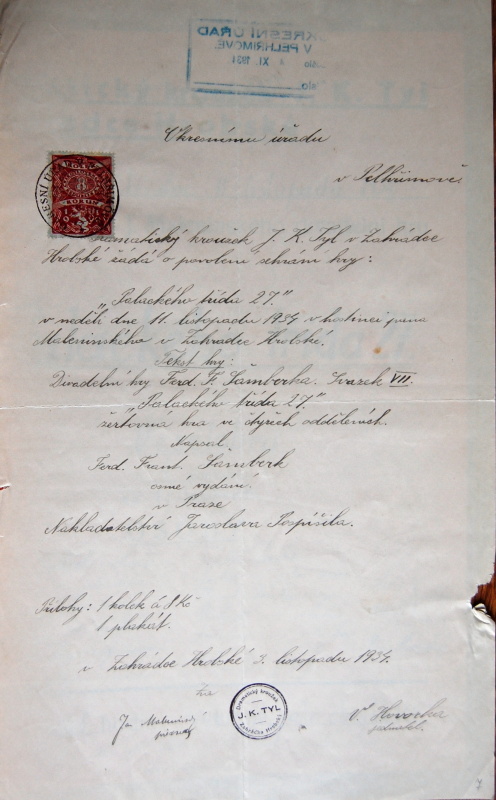 Okresnímu úřadu
v Pelhřimově
Dramatický kroužek J. K. Tyl v Zahrádce
Hrobské žádá o povolení sehrání hry:
„Palackého třída 27."
v neděli dne 11. listopadu 1934 v hostinci pana
Maleninského v Zahrádce Hrobské.
Tekst hry:
Divadelní hry Ferd. F. Šamberka. Svazek VII.
„Palackého třída 27."
žertovna hra ve čtyřech odděleních.
Napsal
Ferd. Frant. Šamberk
osmé vydání.
v Praze
Nakladatelství Jaroslava Pospíšila.
Přílohy: 1 kolek á 8 Kč
1 plakát.
v Zahrádce Hrobské 3. listopadu 1934.
za
Dramatický kroužek
J. K. TYL
Zahrádka Hrobská
V. Hovorka
jednatel.
OKRESNÍ ÚŘAD
V PELHŘIMOVĚ
XI. 1934
8
KORUN
7